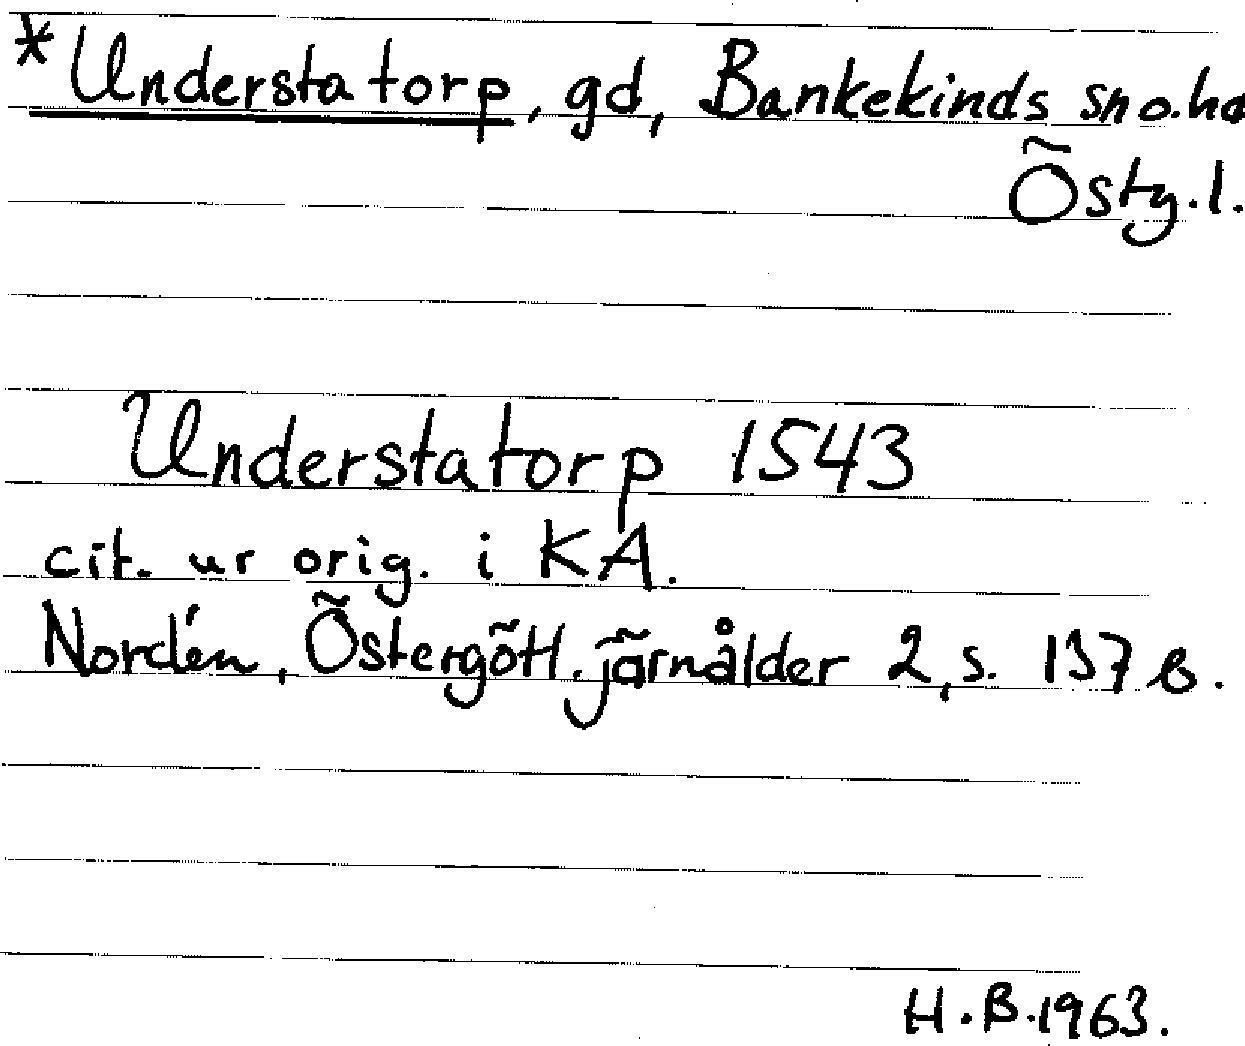 *Understatorp, gd, Bankekinds sn o. hd
Östg. l.
Understatorp 1543
cit. ur orig. i KA.
Nordén, Östergötl. järnålder 2, s. 137 B.
H. B. 1963.